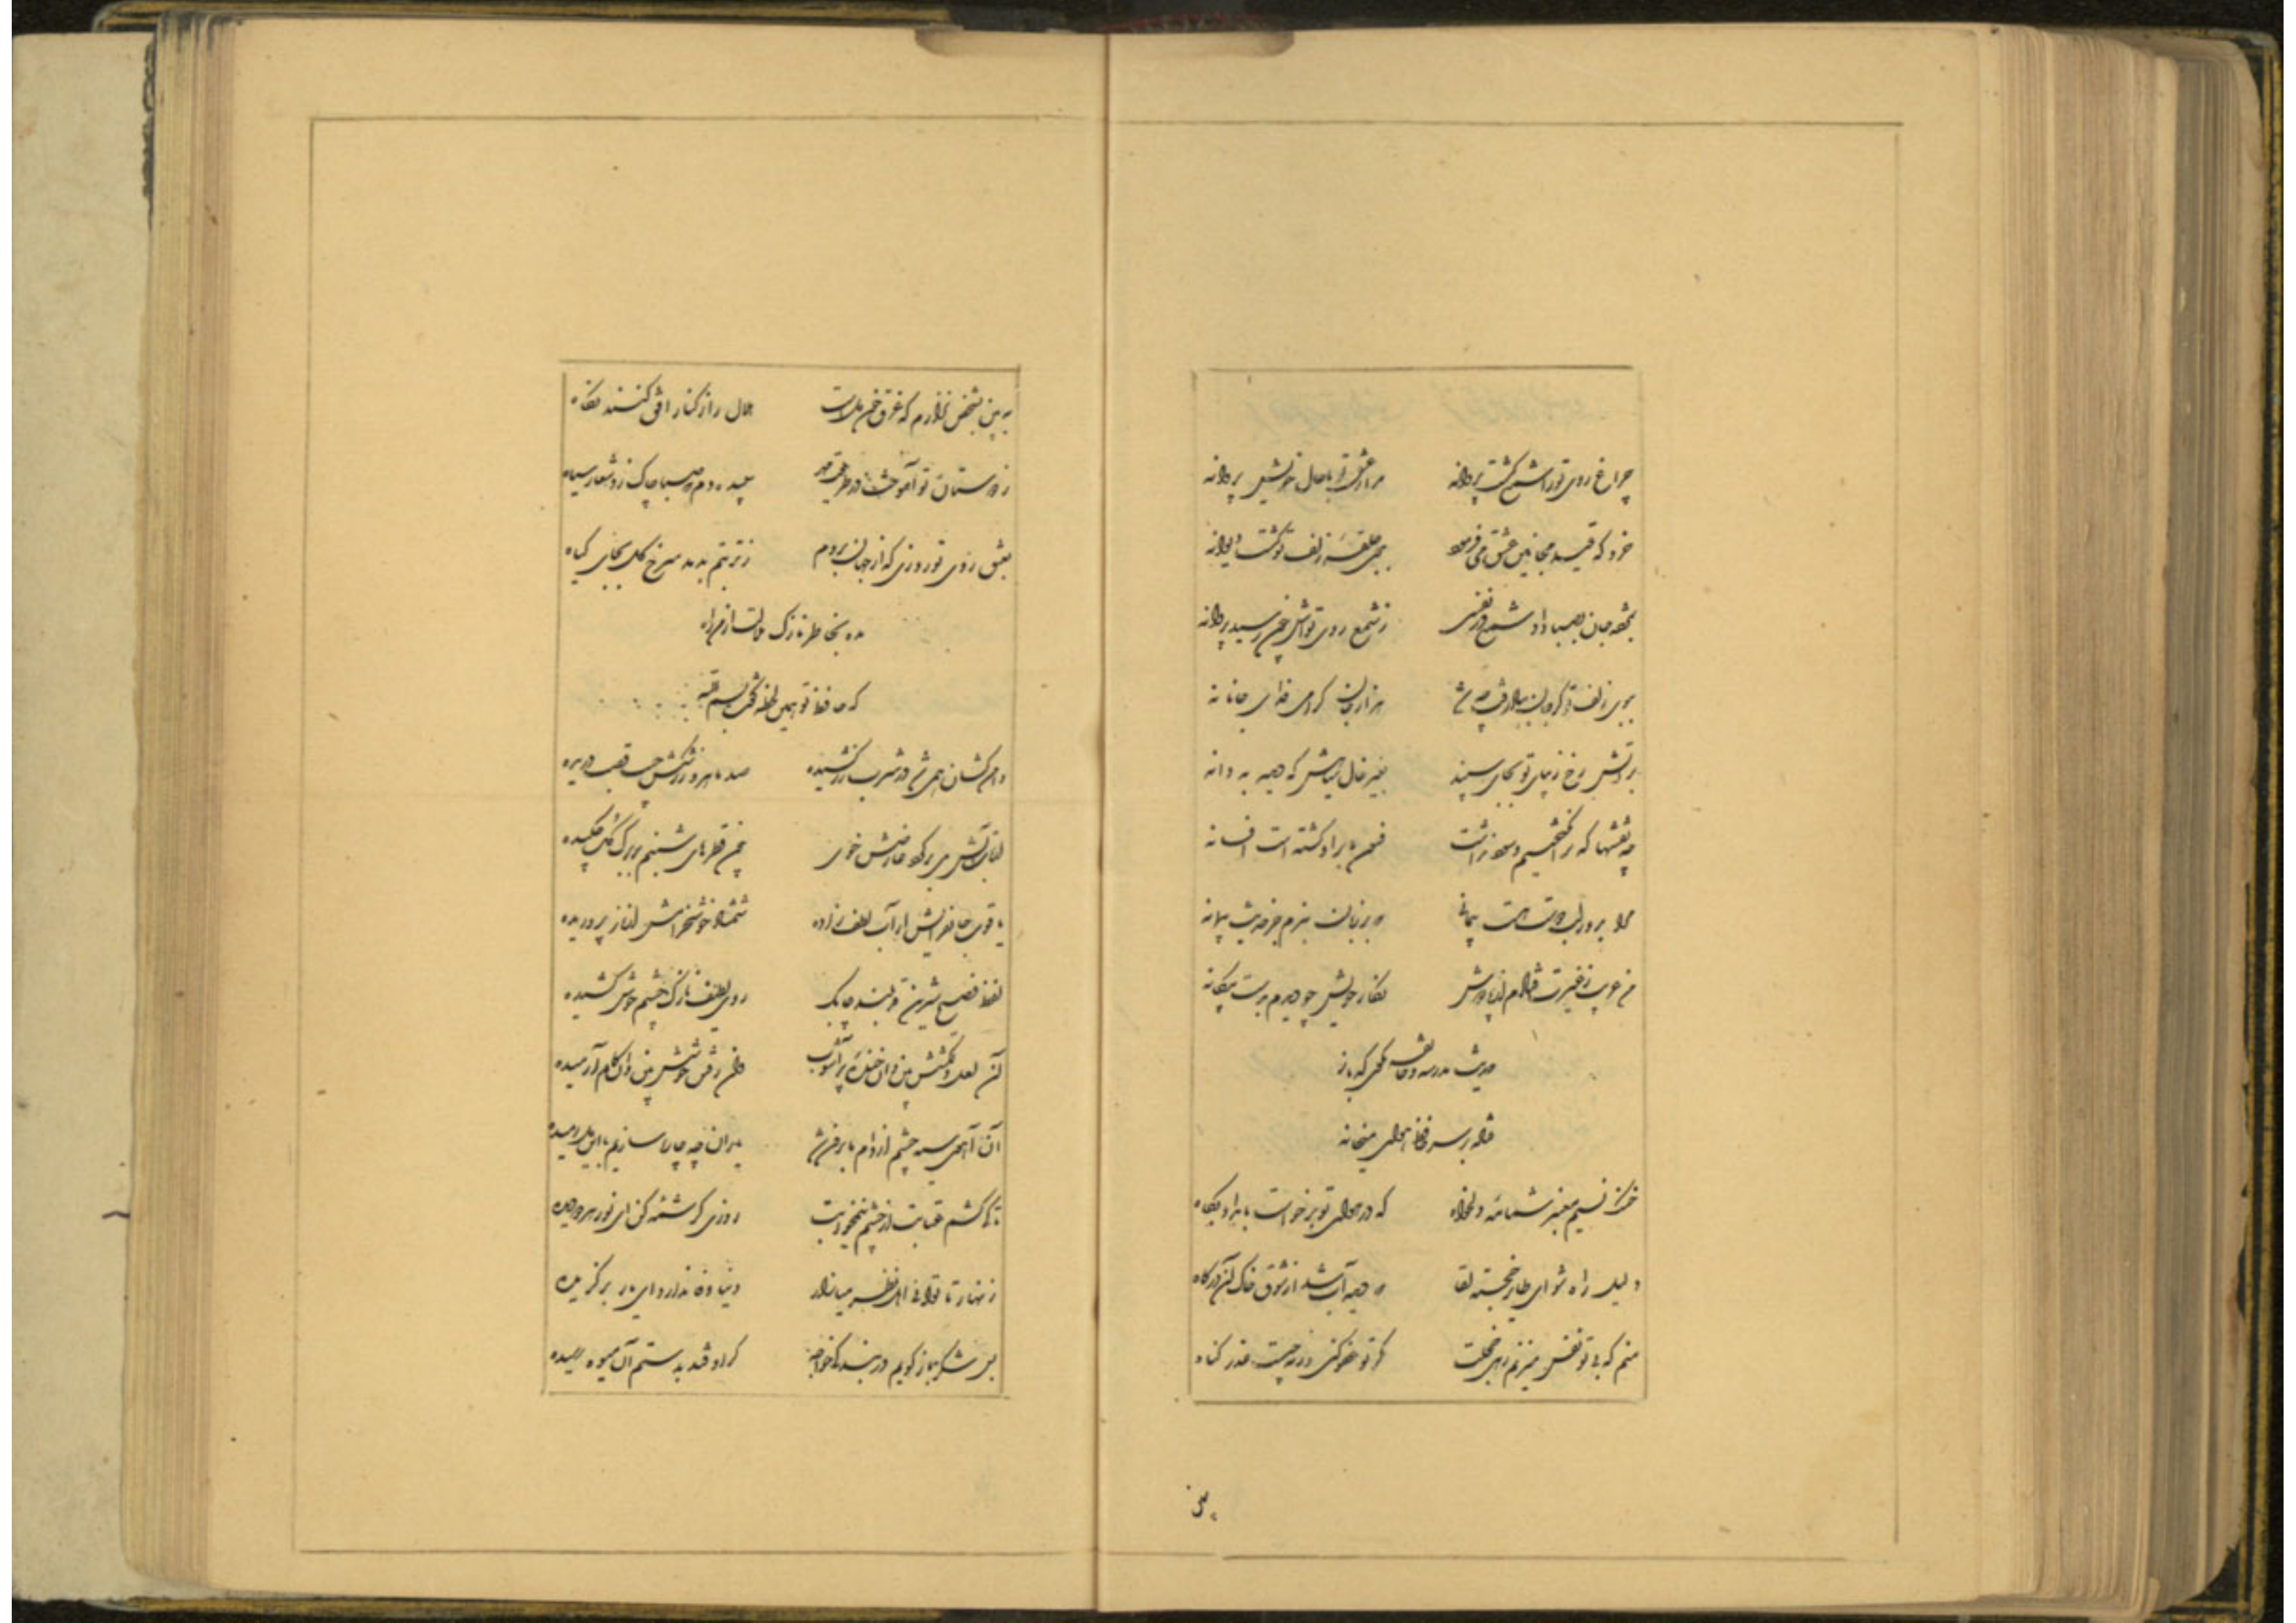 چراغ روی تو را شمع گشت پروانه مرا ز عشق تو با حال خویش پروا نه
خرد که قید مجانین عشق می فرمود ببوی حلقه زلف تو گشت دیوانه
بمژده جان بصبا داد شمع در نفسی ز شمع روی تواش چون رسید پروانه
ببوی زلف تو گر جان بباد رفت چه شد هزار جان گرامی فدای جانانه
بر آتش رخ زیبای تو بجای سپند بغیر خال سیاهش که دید به دانه
چه نقشها که برانگیختیم و سود نداشت فسون ما بر او گشته است افسانه
مرا بدور لب دوست هست پیمانی که بر زبان نبرم جز حدیث پیمانه
من غریب ز غیرت فتادم از پا دوش نگار خویش چو دیدم بدست بیگانه
حدیث مدرسه و خانقه مگوی که باز
فتاد بر سر حافظ هوای میخانه
خنک نسیم معنبر شمامه دلخواه که در هوای تو برخواست بامداد پگاه
دلیل راه شو ای طایر خجسته لقا که دیده آب شد از شوق خاک آن درگاه
منم که بی تو نفس میزنم زهی خجلت مگر تو عفو کنی ورنه چیست عذر گناه
ببین
به بین بشخص نزارم که غرق خون دلست هلال را ز کنار افق کنند نگاه
ز دوستان تو آموخت در طریقت مهر سپیده دم که صبا چاک زد شعار سیاه
بعشق روی تو روزی که از جهان بروم ز تربتم بدمد سرخ گل بجای گیاه
مده بخاطر نازک ملالت از من راه
که حافظ تو همین لحظه گفت بسم الله
دامن کشان همی شد در شرب زر کشیده صد ماهرو ز رشکش جیب قصب دریده
از تاب آتش می بر گرد عارضش خوی چون قطرهای شبنم بر برگ گل چکیده
یاقوت جانفزایش از آب لطف زاده شمشاد خوشخرامش در ناز پروریده
لفظ فصیح شیرین قد بلند چابک روی لطیف نازک چشم خوش کشیده
آن لعل دلکشش بین وان خنده پر آشوب وان رفتن خوشش بین وان گام آرمیده
آن آهوی سیه چشم از دام ما برون شد یاران چه چاره سازیم با این دل رمیده
تا کی کشم عتابت از چشم نیم خوابت روزی کرشمه کن ای نور هر دو دیده
زنهار تا توانی اهل نظر میازار دنیا وفا ندارد ای یار برگزیده
بس شکر باز گویم در بندگی خواجه گر اوفتد بدستم آن میوه رسیده